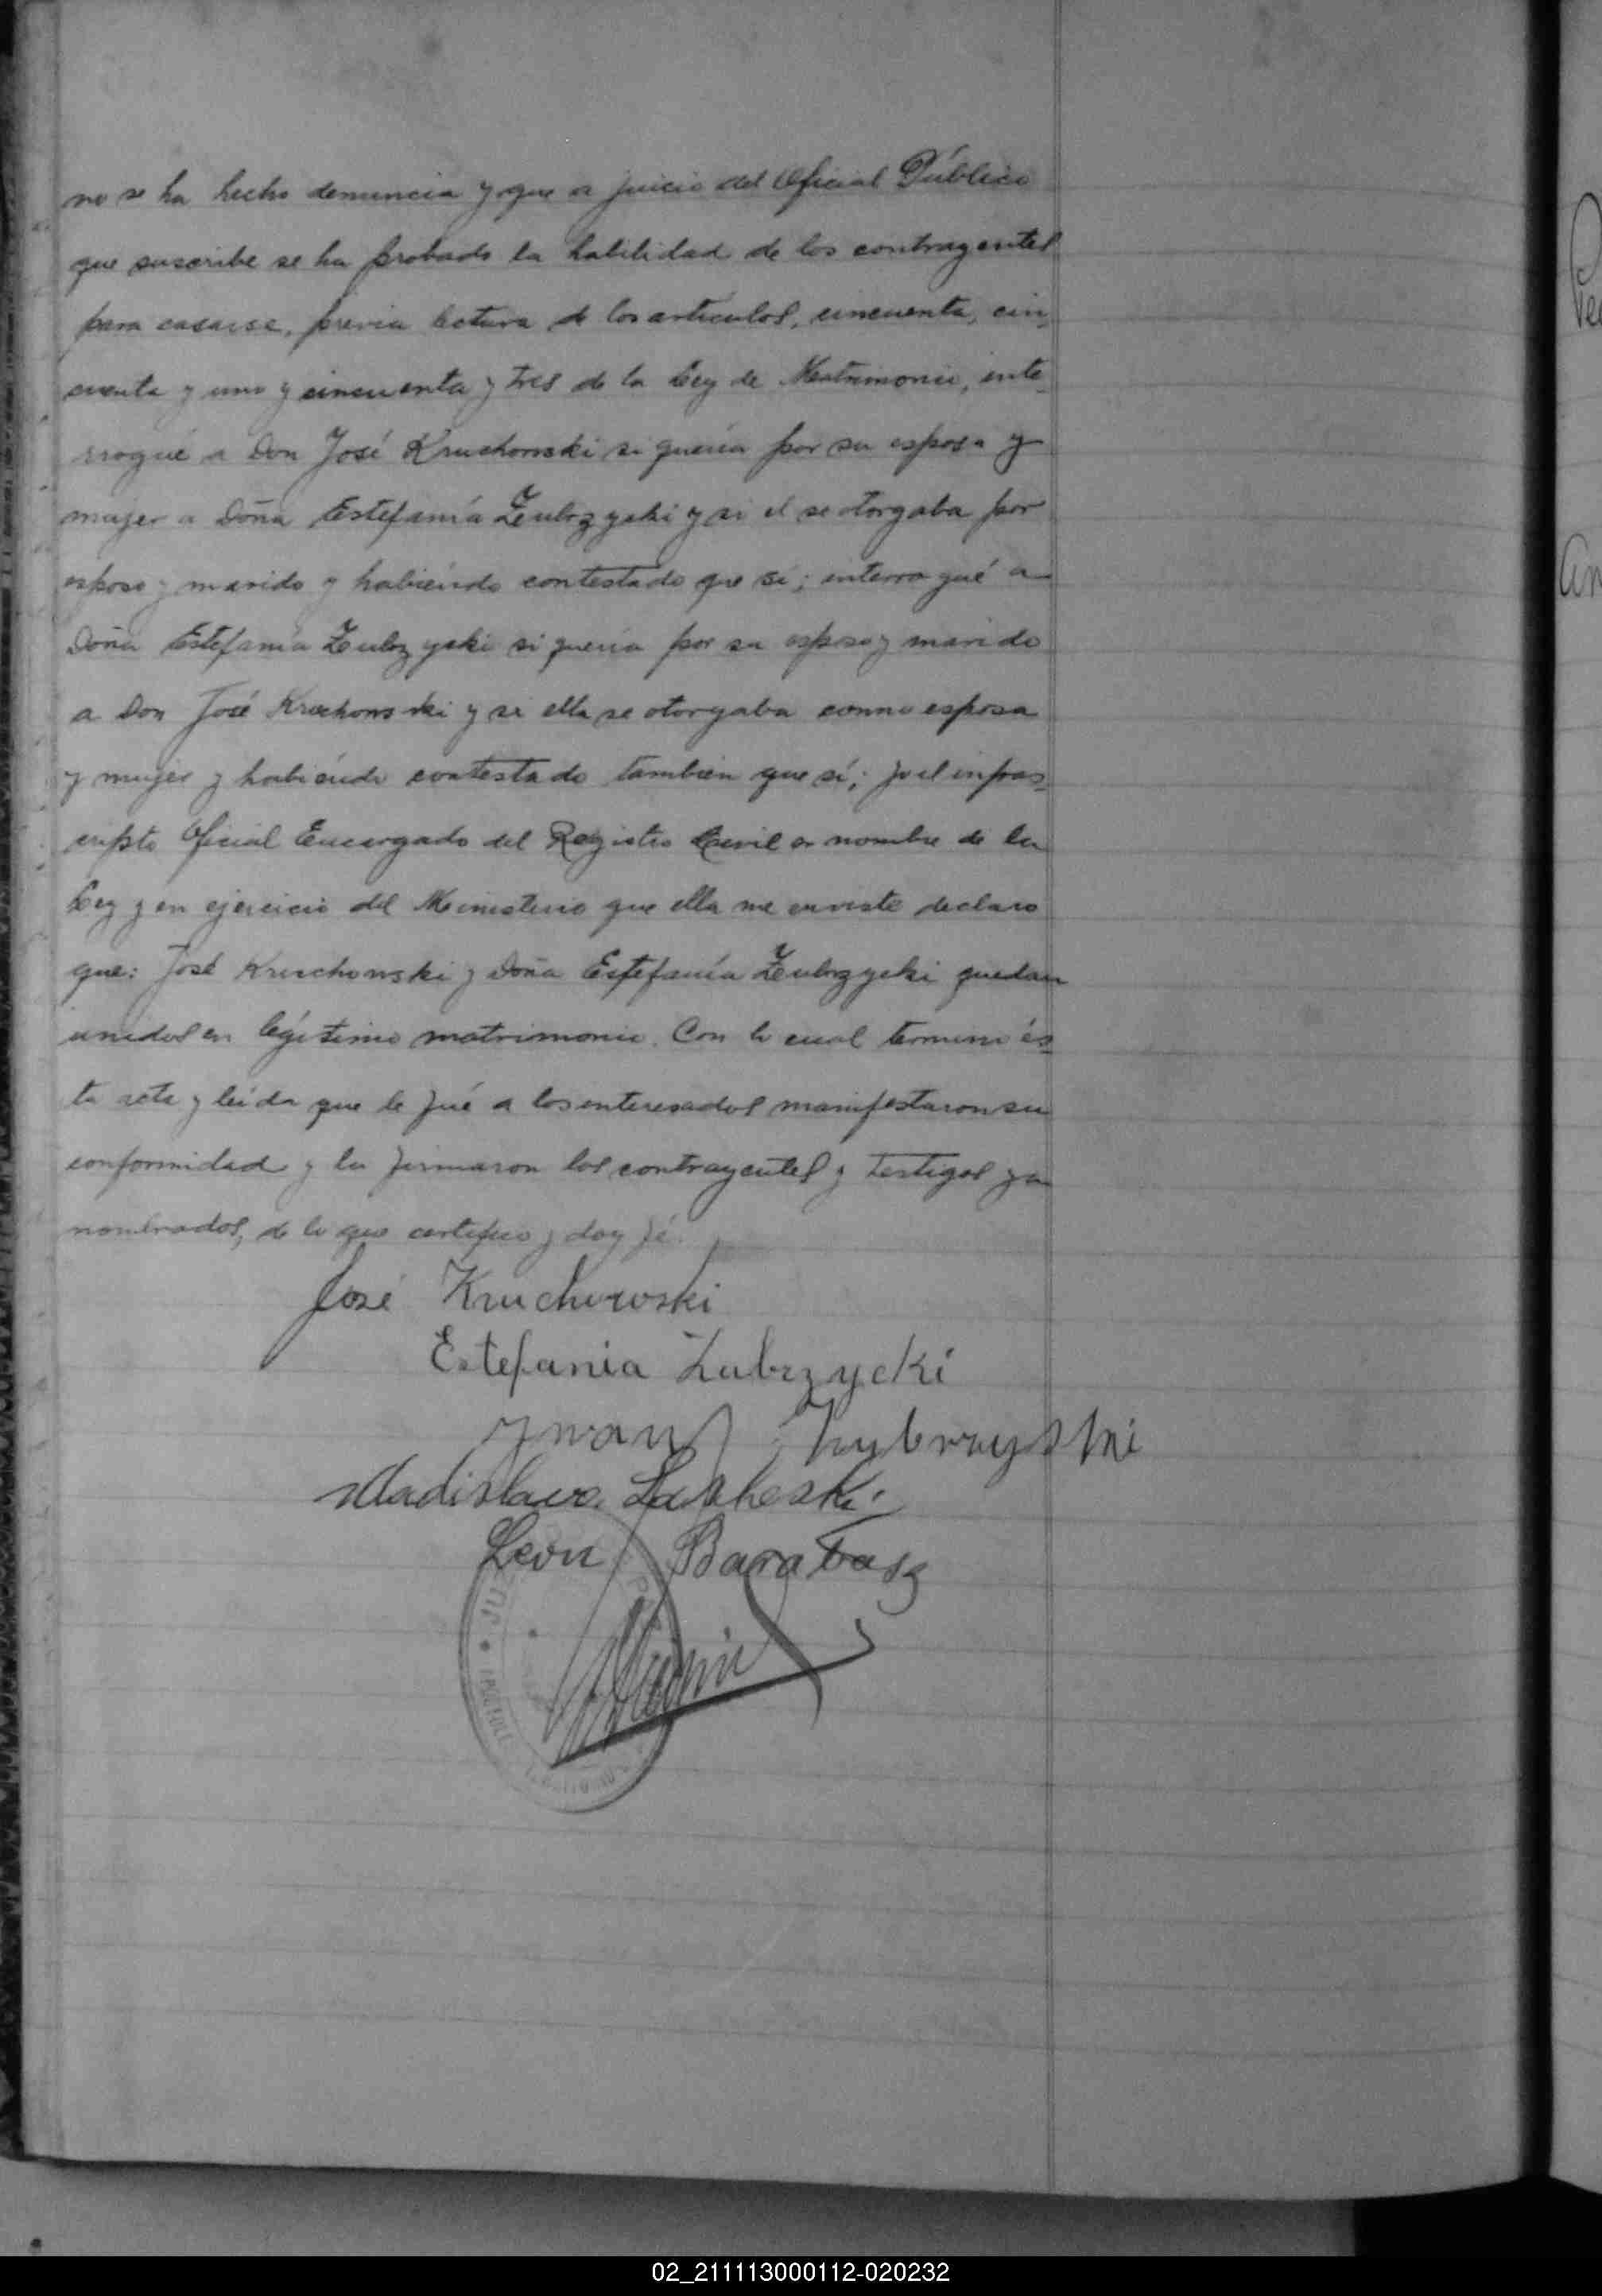 no se ha hecho denuncia y que a juicio del Oficial Público
que suscribe se ha probado la habilidad de los contrayentes
para casarse, previa lectura de los artículos, cincuenta, cin,
cuenta y uno y cincuenta y tres de la Ley de Matrimonio, inte_
rrogué a Don José Kruchowski si quería por su esposa y
mujer a Doña Estefanía Zubrzycki y si el se otorgaba por
esposo y marido y habiéndo contestado que sí; interrogué a
Doña Estefanía Zubrzycki si quería por su esposo y marido
a Don José Kruchowski y si ella se otorgaba como esposa
y mujer y habiéndo contestado también que sí; yo el infras_
cripto Oficial Encargado del Registro Civil a nombre de la
Ley y en ejercicio del Ministerio que ella me enviste declaro
que: José Kruchowski y Doña Estefanía Zubrzycki quedan
unidos en legítimo matrimonio. Con lo cual terminó és_
ta acta y leída que le fué a los interesados manifestaron su
conformidad y la firmaron los contrayentes y testigos ya
nombrados, de lo que certifico y doy fé.
José Kruchowski
Estefania Zubrzycki
Iwan
Wladislavo
Leon Barabasz
JU P
02_211113000112-020232